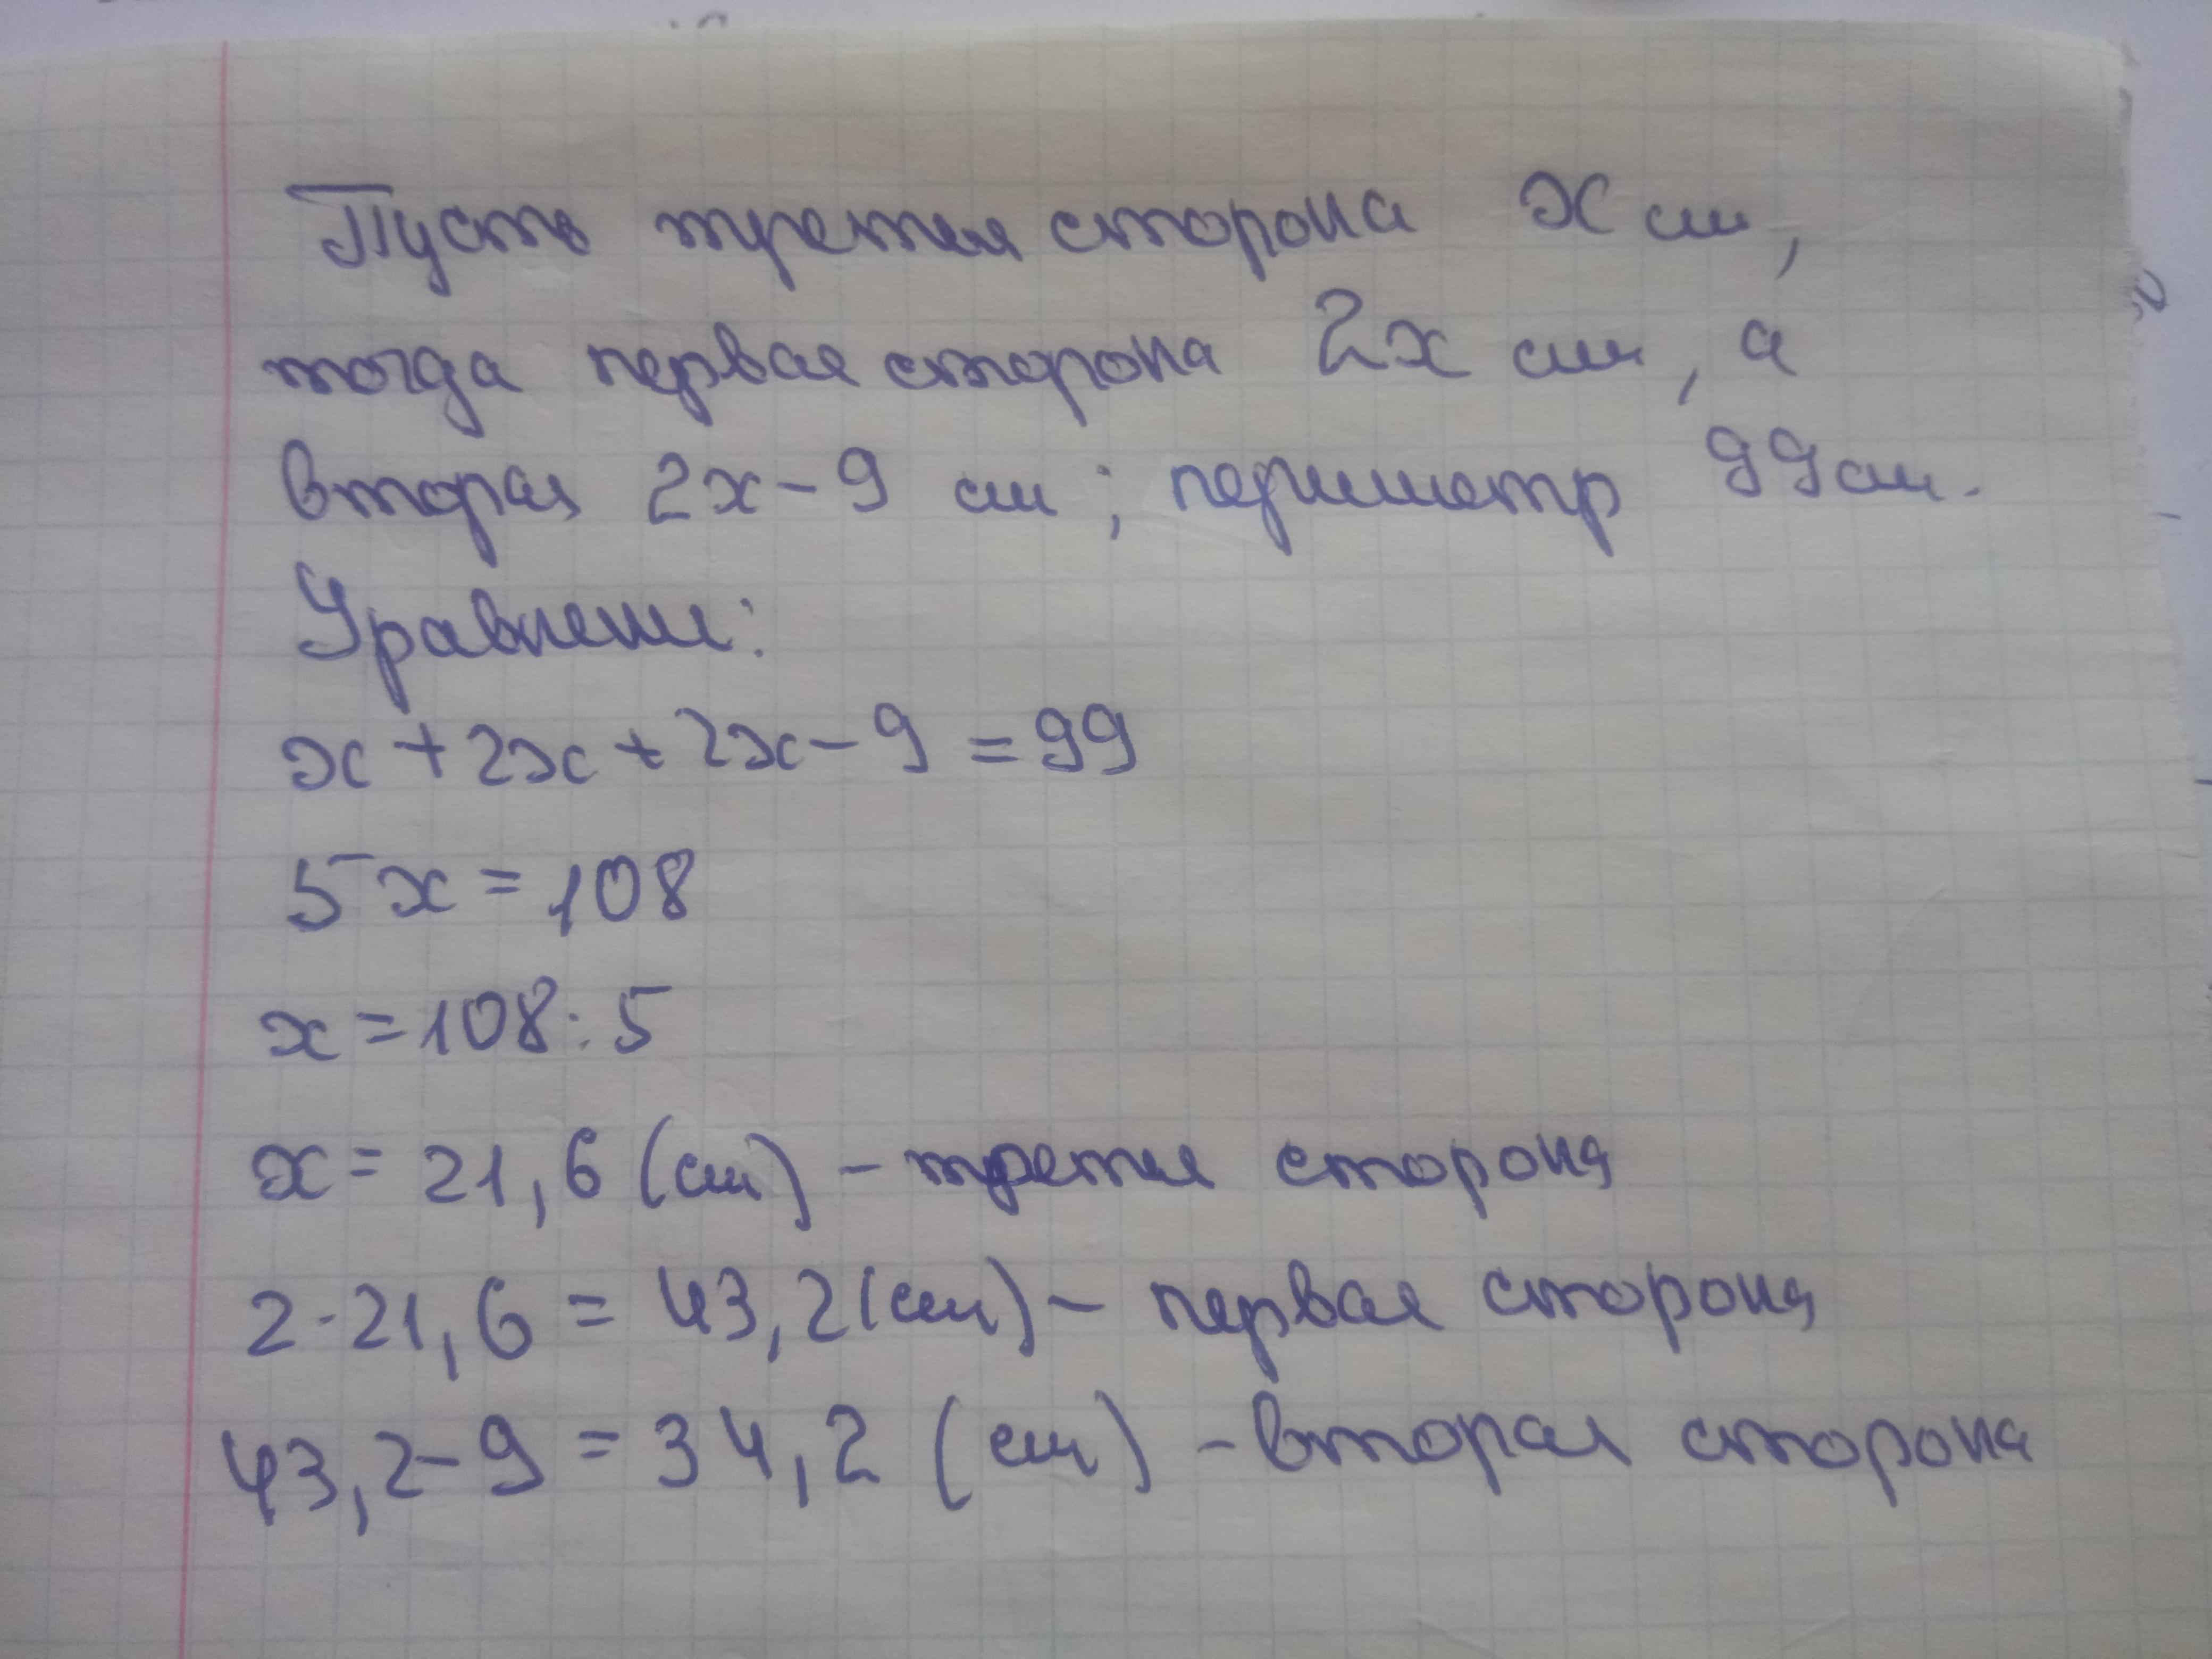 Пусть третья сторона x см,
тогда первая сторона 2x см, а
вторая 2x-9 см; периметр 99 см.
Уравнение:
x+2x+2x-9=99
5x=108
x=108:5
x=21,6 (см) - третья сторона
2·21,6=43,2(см)- первая сторона
43,2-9=34,2 (см) - вторая сторона